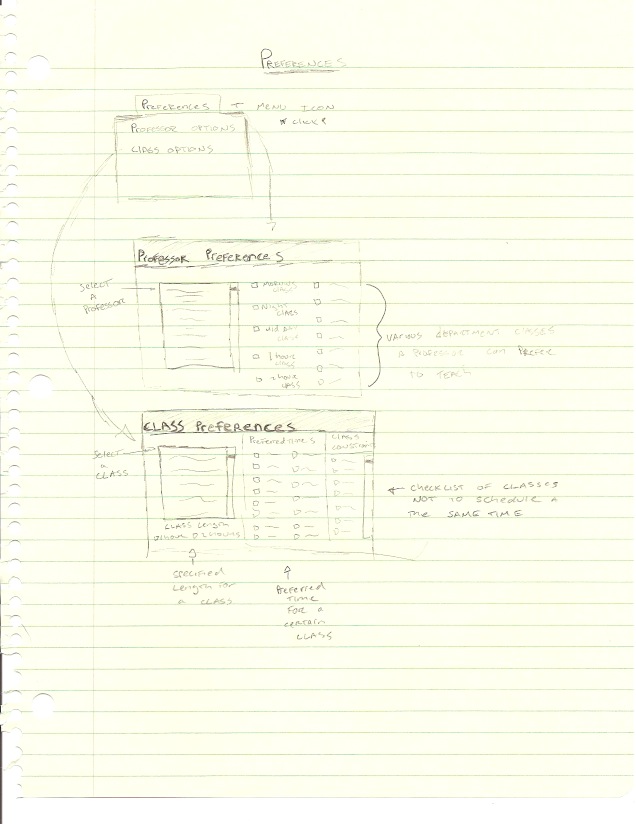 PREFERENCES
PREFERENCES
MENU ICON
* CLICK *
PROFESSOR OPTIONS
CLASS OPTIONS
PROFESSOR PREFERENCES
SELECT
A
PROFESSOR
MORNING
CLASS
Night
CLASS
MID DAY
CLASS
1 hour
CLASS
2 hour
CLASS
VARIOUS DEPARTMENT CLASSES
A PROFESSOR CAN PREFER
TO TEACH
CLASS PREFERENCES
Preferred times
CLASS
SELECT
a
CLASS
CLASS Length
1 hour 2 hours
CHECKLIST OF CLASSES
NOT TO SCHEDULE A
THE SAME TIME
SPECIFIED
Length for
a CLASS
Preferred
TIME
FOR a
certain
CLASS